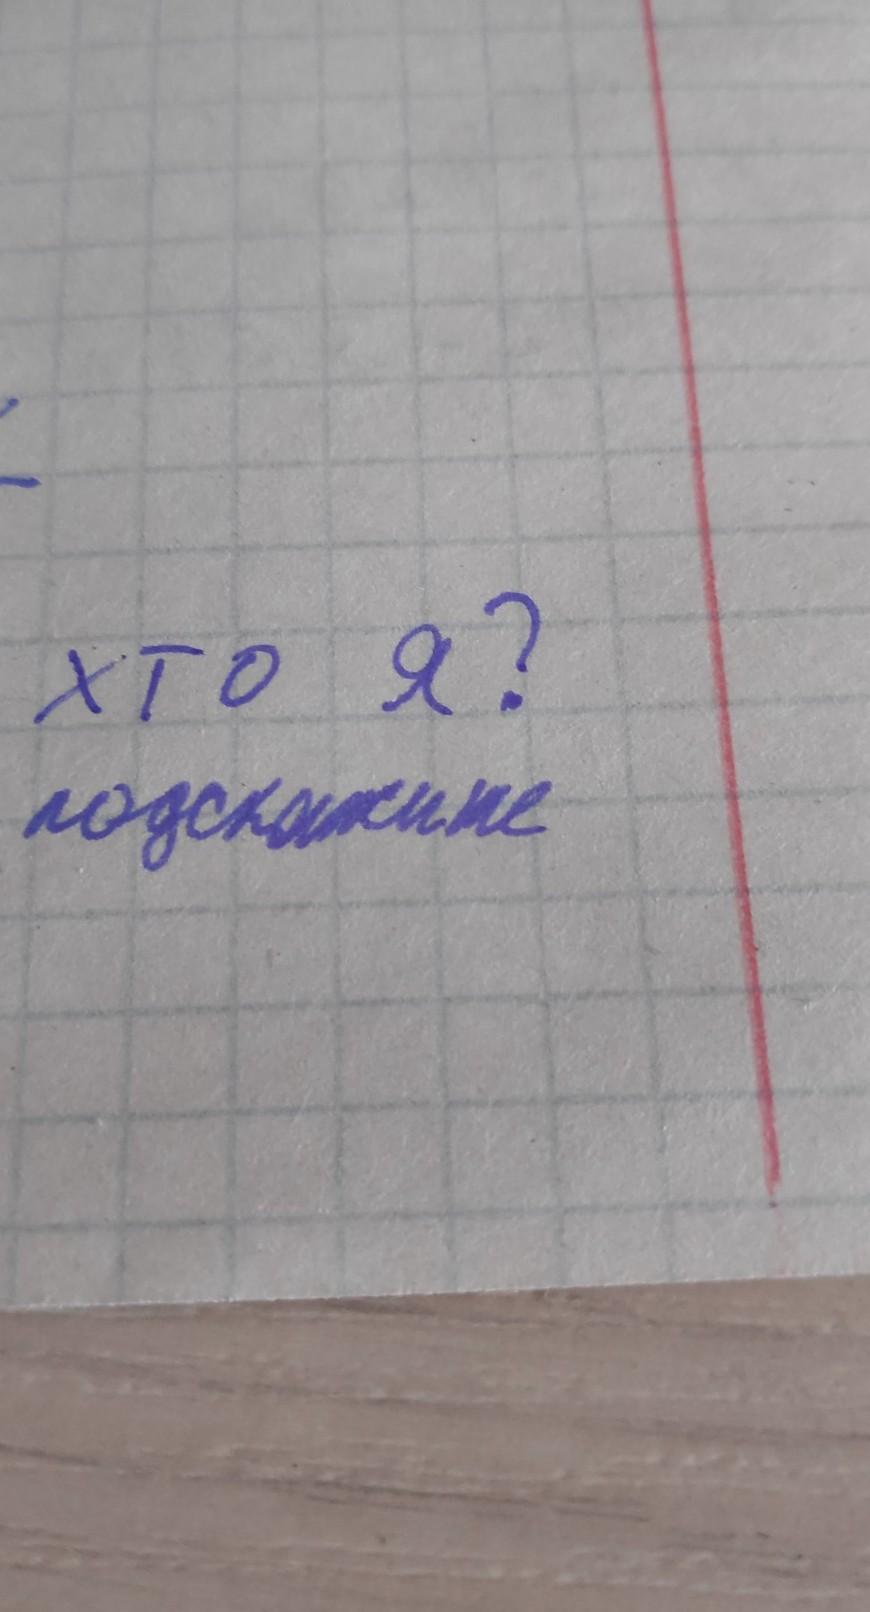 хто я?
подскажите